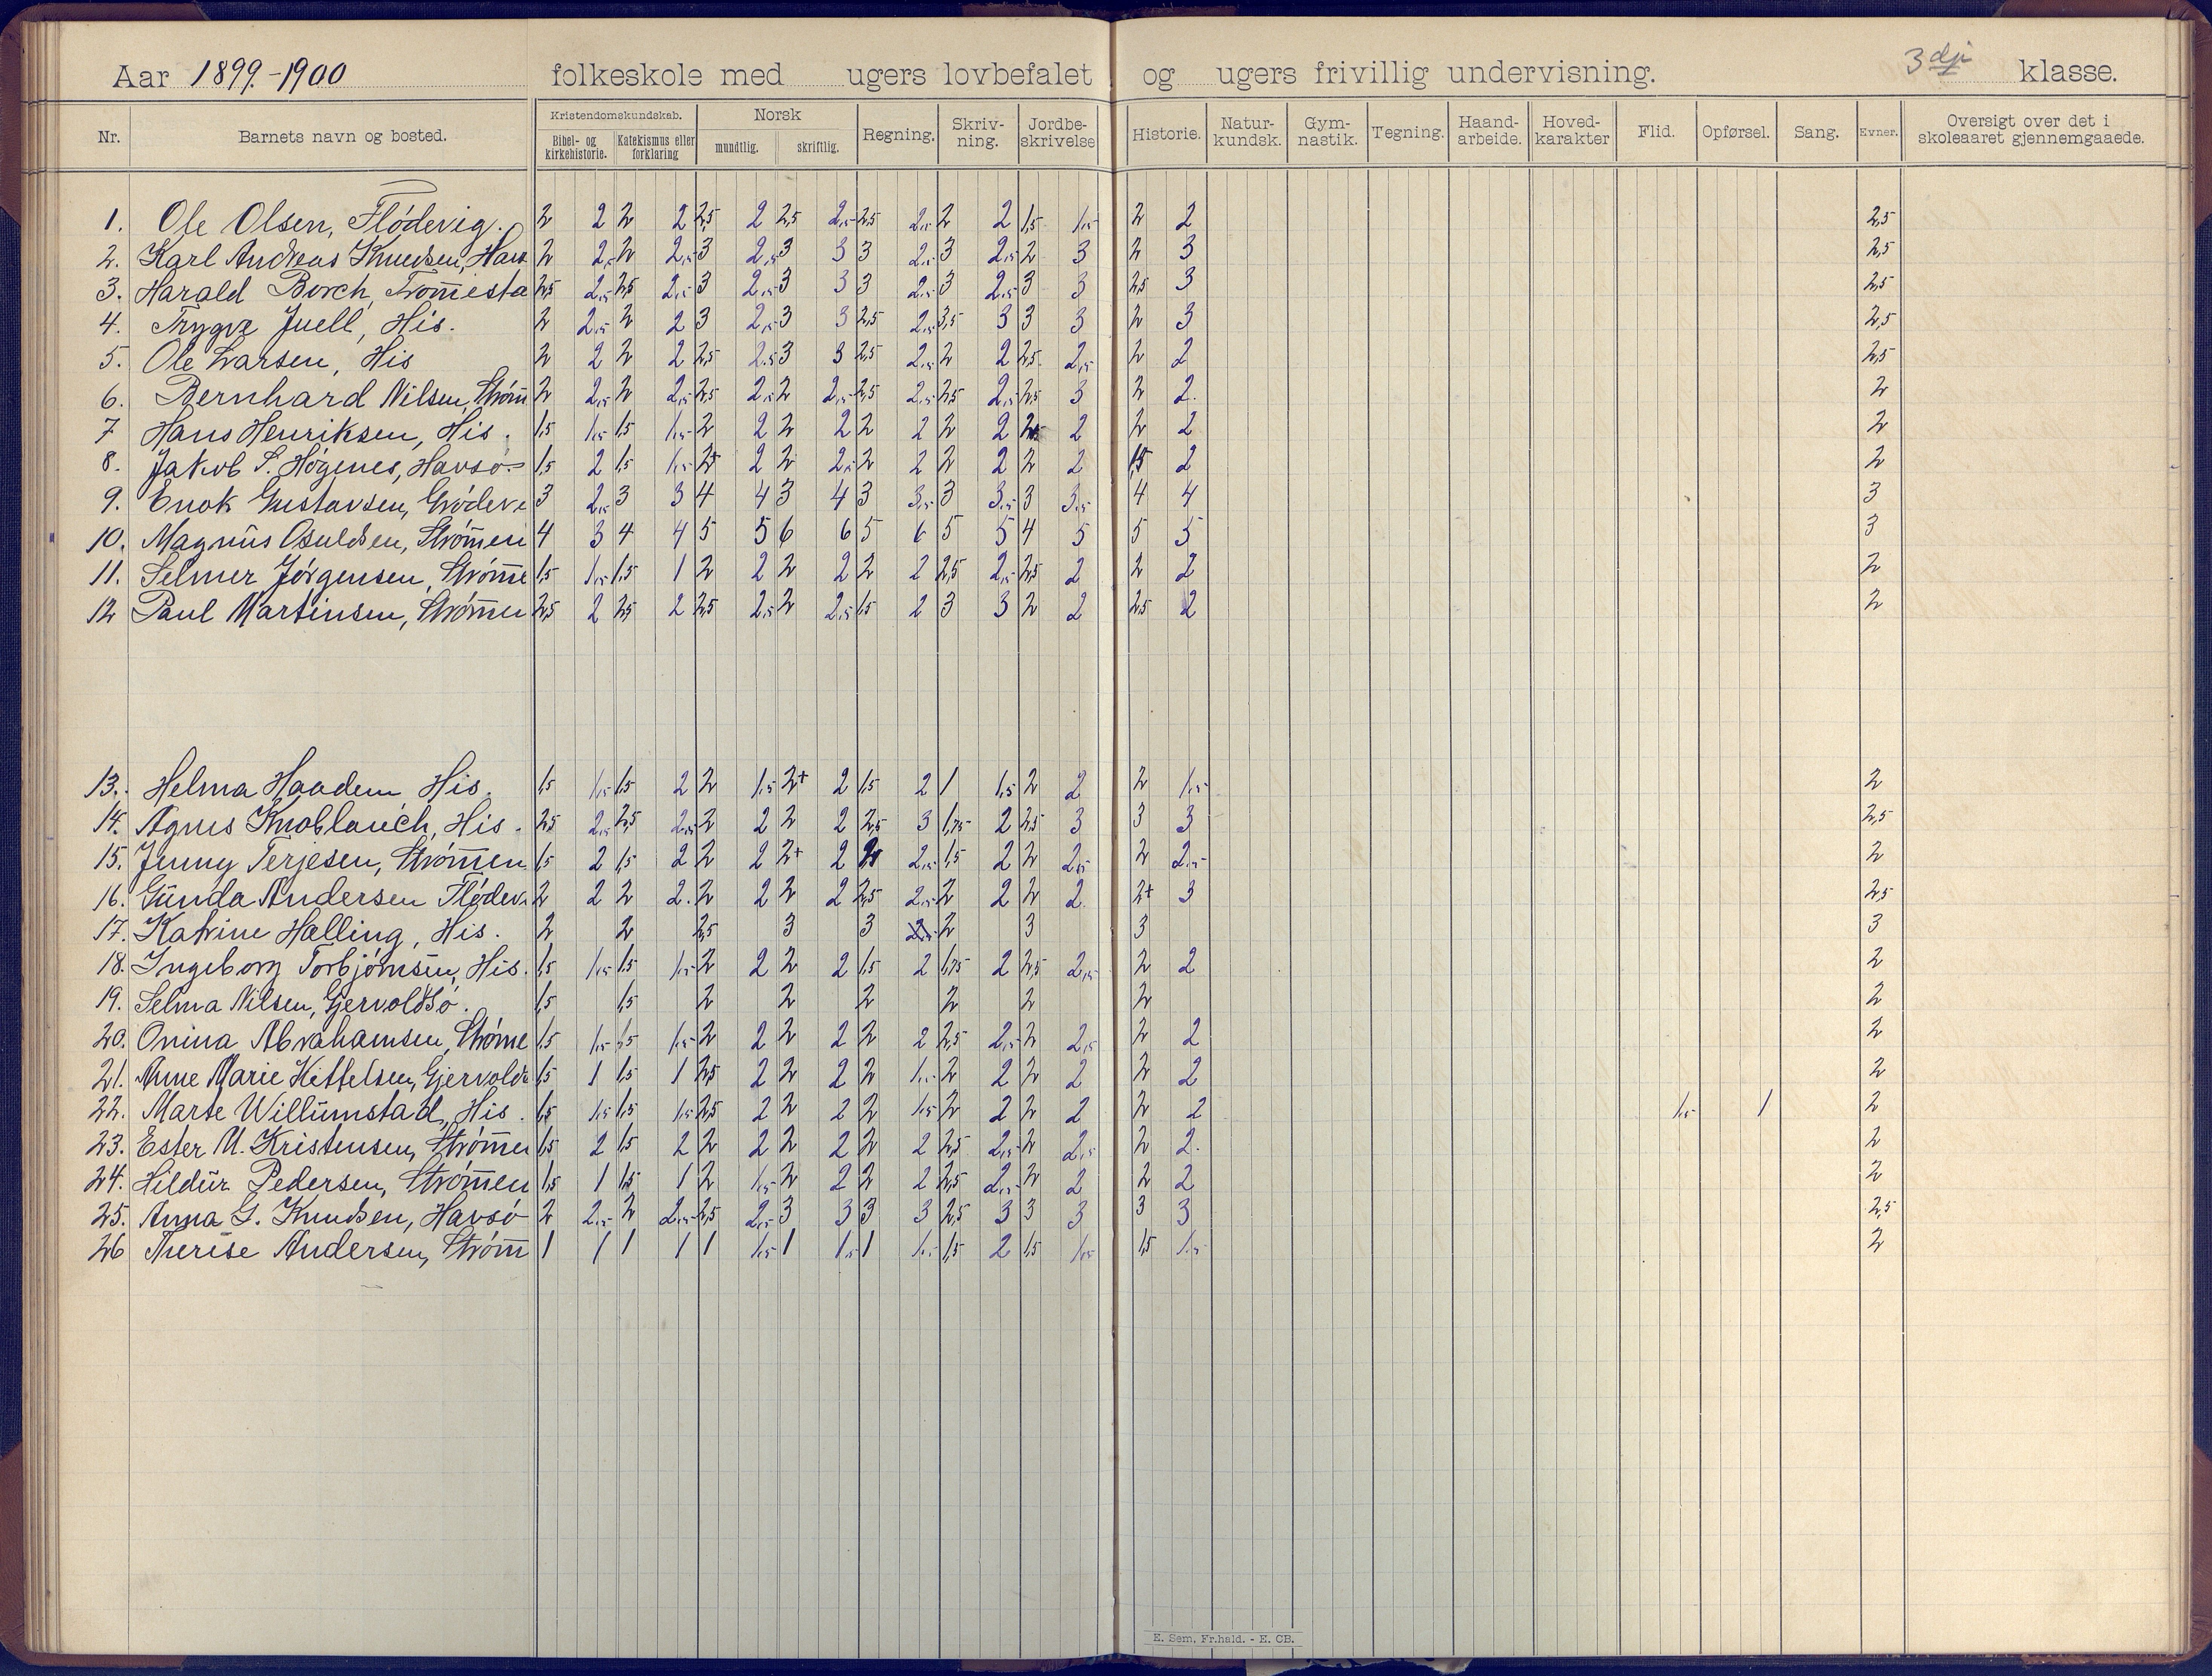 Aar 1899.-1900 folkeskole med ugers lovbefalet og ugers frivillig undervisning. 3dje klasse.
Nr. Barnets navn og bosted. Kristendomskundskab. Bibel- og kirkehistorie. Katekismus eller forklaring Norsk mundtlig. skriftlig. Regning. Skriv-ning. Jordbe-skrivelse Historie. Natur-kundsk. Gym-nastik. Tegning. Haand-arbeide. Hoved-karakter Flid. Opførsel. Sang. Evner. Oversigt over det i skoleaaret gjennemgaaede.
1. Ole Olsen, Flödevig. 2 2 2 2 2,5 2 2,5 2,5 2,5 2,5 2 2 1,5 1,5 2 2 2,5
2. Karl Andreas Knudsen, Havs 2 2,5 2 2,5 3 2,5 3 3 3 2,5 3 2,5 2 3 2 3 2,5
3. Harald Borch, Tromesta 2,5 2,5 2,5 2,5 3 2,5 3 3 3 2,5 3 2,5 3 3 2,5 3 2,5
4. Trygve Juell, His. 2 2,5 2 2 3 2,5 3 3 2,5 2,5 3,5 3 3 3 2 3 2,5
5. Ole Larsen, His 2 2 2 2 2,5 2,5 3 3 2,5 2,5 2 2 2,5 2,5 2 2 2,5
6. Bernhard Nilsen, Ström 2 2,5 2 2,5 2,5 2,5 2 2,5 2,5 2,5 2,5 2,5 2,5 3 2 2. 2
7 Hans Henriksen, His. 1,5 1,5 1,5 1,5 2 2 2 2 2 2 2 2 2,5 2 2 2 2
8. Jakob S. Högenes, Havsö. 1,5 2 1,5 1,5 2+ 2 2 2,5 2 2 2 2 2 2 1,5 2 2
9. Enok Gustavsen, Grödeve 3 2,5 3 3 4 4 3 4 3 3,5 3 3,5 3 3,5 4 4 3
10. Magnus Osuldsen, Strömen 4 3 4 4 5 5 6 6 5 6 5 5 4 5 5 5 3
11. Selmer Jörgensen, Ströme 1,5 1,5 1,5 1 2 2 2 2 2 2 2,5 2,5 2,5 2 2 2 2
12 Paul Martinsen, Strömen 2,5 2 2,5 2 2,5 2,5 2 2,5 1,5 2 3 3 2 2 2,5 2 2
13. Helma Haadem His. 1,5 1,5 1,5 2 2 1,5 2+ 2 1,5 2 1 1,5 2 2 2 1,5 2
14. Agnes Knoblauch, His. 2,5 2,5 2,5 2,5 2 2 2 2 2,5 3 1,75 2 2,5 3 3 3 2,5
15. Jenny Terjesen, Strömen 1,5 2 1,5 2 2 2 2+ 2 2 2,5 1,5 2 2 2,5 2 2,5 2
16. Gunda Andersen Flödev. 2 2 2 2. 2 2 2 2 2,5 2,5 2 2 2 2. 2+ 3 2,5
17. Katrine Hælling, His. 2 2 2,5 3 3 2 3 3 3
18. Ingeborg Torbjörnsen, His. 1,5 1,5 1,5 1,5 2 2 2 2 1,5 2 1,75 2 2,5 2,5 2 2 2
19. Selma Nilsen, Gjervoldsö. 1,5 1,5 2 2 2 2 2 2 2
20. Onina Abrahamsen, Ströme 1,5 1,5 1,5 1,5 2 2 2 2 2 2 2,5 2,5 2 2,5 2 2 2
21. Anne Marie Kittelsen, Gjervolds 1,5 1 1,5 1 2,5 2 2 2 2 1,5 2 2 2 2 2 2 2
22. Marte Willumstad, His. 1,5 1,5 1,5 1,5 2,5 2 2 2 2 1,5 2 2 2 2 2 2 1,5 1 2
23. Ester M. Kristensen, Strömen 1,5 2 1,5 2 2 2 2 2 2 2 2,5 2,5 2 2,5 2 2. 2
24. Hildur Pedersen, Strömen 1,5 1 1,5 1 2 1,5 2 2 2 2 2,5 2,5 2 2 2 2 2
25. Anna G. Knudsen, Havsö 2 2,5 2 2,5 2,5 2,5 3 3 3 3 2,5 3 3 3 3 3 2,5
26 Therese Andersen, Ström 1 1 1 1 1 1,5 1 1,5 1 1,5 1,5 2 1,5 1,5 1,5 1,5 2
E. Sem, Fr.hald. - E. CB.